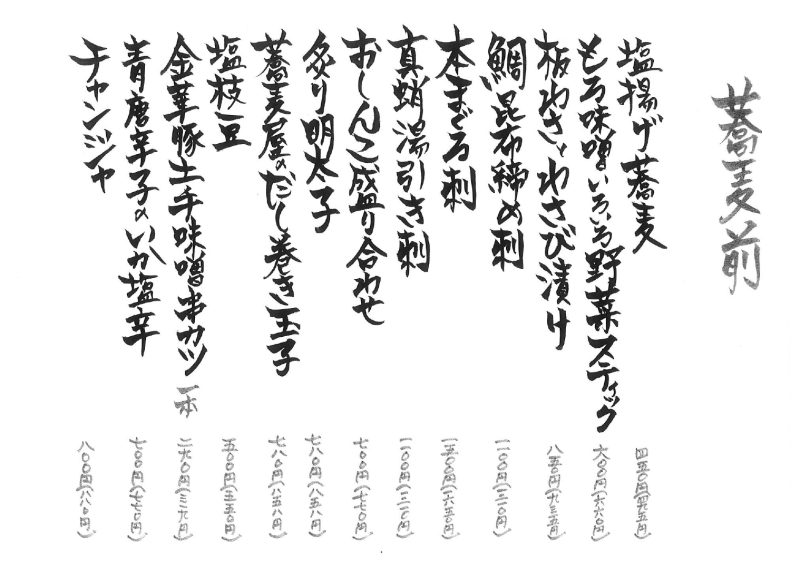 蕎麦前
塩揚げ蕎麦 四五〇円(四九五円)
もろ味噌いろいろ野菜スティック 六〇〇円(六六〇円)
板わさとわさび漬け 八五〇円(九三五円)
鯛昆布締め刺 一一〇〇円(一二一〇円)
本まぐろ刺 一五〇〇円(一六五〇円)
真蛸湯引き刺 一一〇〇円(一二一〇円)
おしんこ盛り合わせ 七〇〇円(七七〇円)
炙り明太子 七八〇円(八五八円)
蕎麦屋のだし巻き玉子 七八〇円(八五八円)
塩枝豆 五〇〇円(五五〇円)
金華豚土手味噌串カツ 一本 二九〇円(三一九円)
青唐辛子のいか塩辛 七〇〇円(七七〇円)
チャンジャ 八〇〇円(八八〇円)